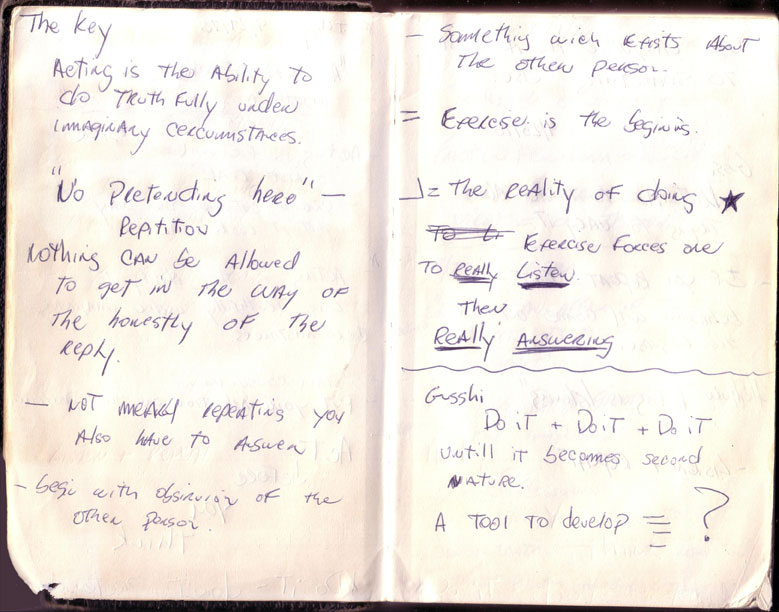 The Key
Acting is the Ability to
do Truthfully under
immaginary cercumstances.
"No Pretending here" —
Reptition
Nothing can be Allowed
to get in the way of
the honestly of the
reply.
— not merely repeating you
Also have to Answer
- begin with obsirvion of the
other person.
— Something wich Exists About
the other person.
= Exercise is the begining.
= the reality of doing ★
Exercise Forces one
To Really Listen.
then
Really Answering
Do iT + Do iT + Do iT
untill it becomes second
nature.
A Tool To develop ?